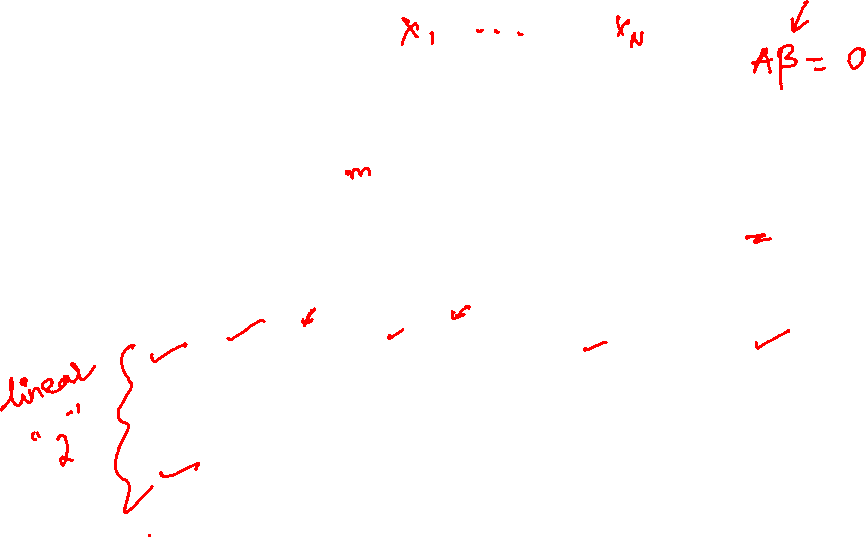 x₁ ... x_N
Aβ = 0
m
linear
"2"